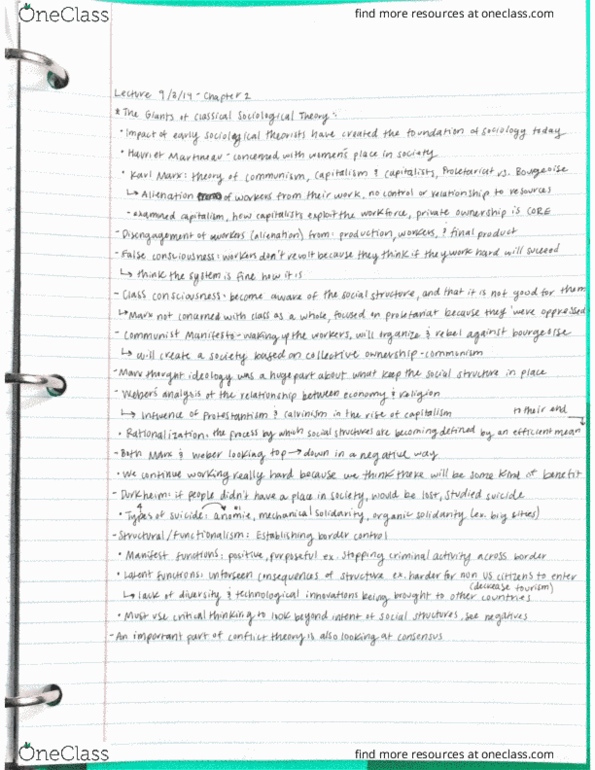 OneClass
find more resources at oneclass.com
Lecture 9/8/14 - Chapter 2
* The Giants of Classical Sociological Theory:
• Impact of early sociological theorists have created the foundation of sociology today
• Harriet Martineau - concerned with women's place in society
• Karl Marx: theory of communism, capitalism & capitalists, Proletariat vs. Bourgeoise
↳ Alienation of workers from their work, no control or relationship to resources
- examined capitalism, how capitalists exploit the workforce, private ownership is CORE
- Disengagement of workers (alienation) from: production, workers, & final product
- False consciousness: workers don't revolt because they think if they work hard will succeed
↳ think the system is fine how it is
- Class consciousness: become aware of the social structure, and that it is not good for them
↳ Marx not concerned with class as a whole, focused on proletariat because they were oppressed
- Communist Manifesto - waking up the workers, will organize & rebel against bourgeoise
↳ will create a society based on collective ownership - communism
- Marx thought ideology was a huge part about what keep the social structure in place
- Weber's analysis of the relationship between economy & religion
↳ Influence of Protestantism & Calvinism in the rise of capitalism
to their end
• Rationalization: the process by which social structures are becoming defined by an efficient mean
- Both Marx & Weber looking top → down in a negative way
• We continue working really hard because we think there will be some kind of benefit
- Durkheim: if people didn't have a place in society, would be lost, studied suicide
• 4 Types of suicide: anomie, mechanical solidarity, organic solidarity (ex. big cities)
- Structural/functionalism: Establishing border control
• Manifest functions: positive, purposeful ex. stopping criminal activity across border
• Latent functions: unforseen consequences of structure ex. harder for non US citizens to enter
(decrease tourism)
↳ lack of diversity & technological innovations being brought to other countries
• Must use critical thinking to look beyond intent of social structures, see negatives
- An important part of conflict theory is also looking at consensus
OneClass
find more resources at oneclass.com